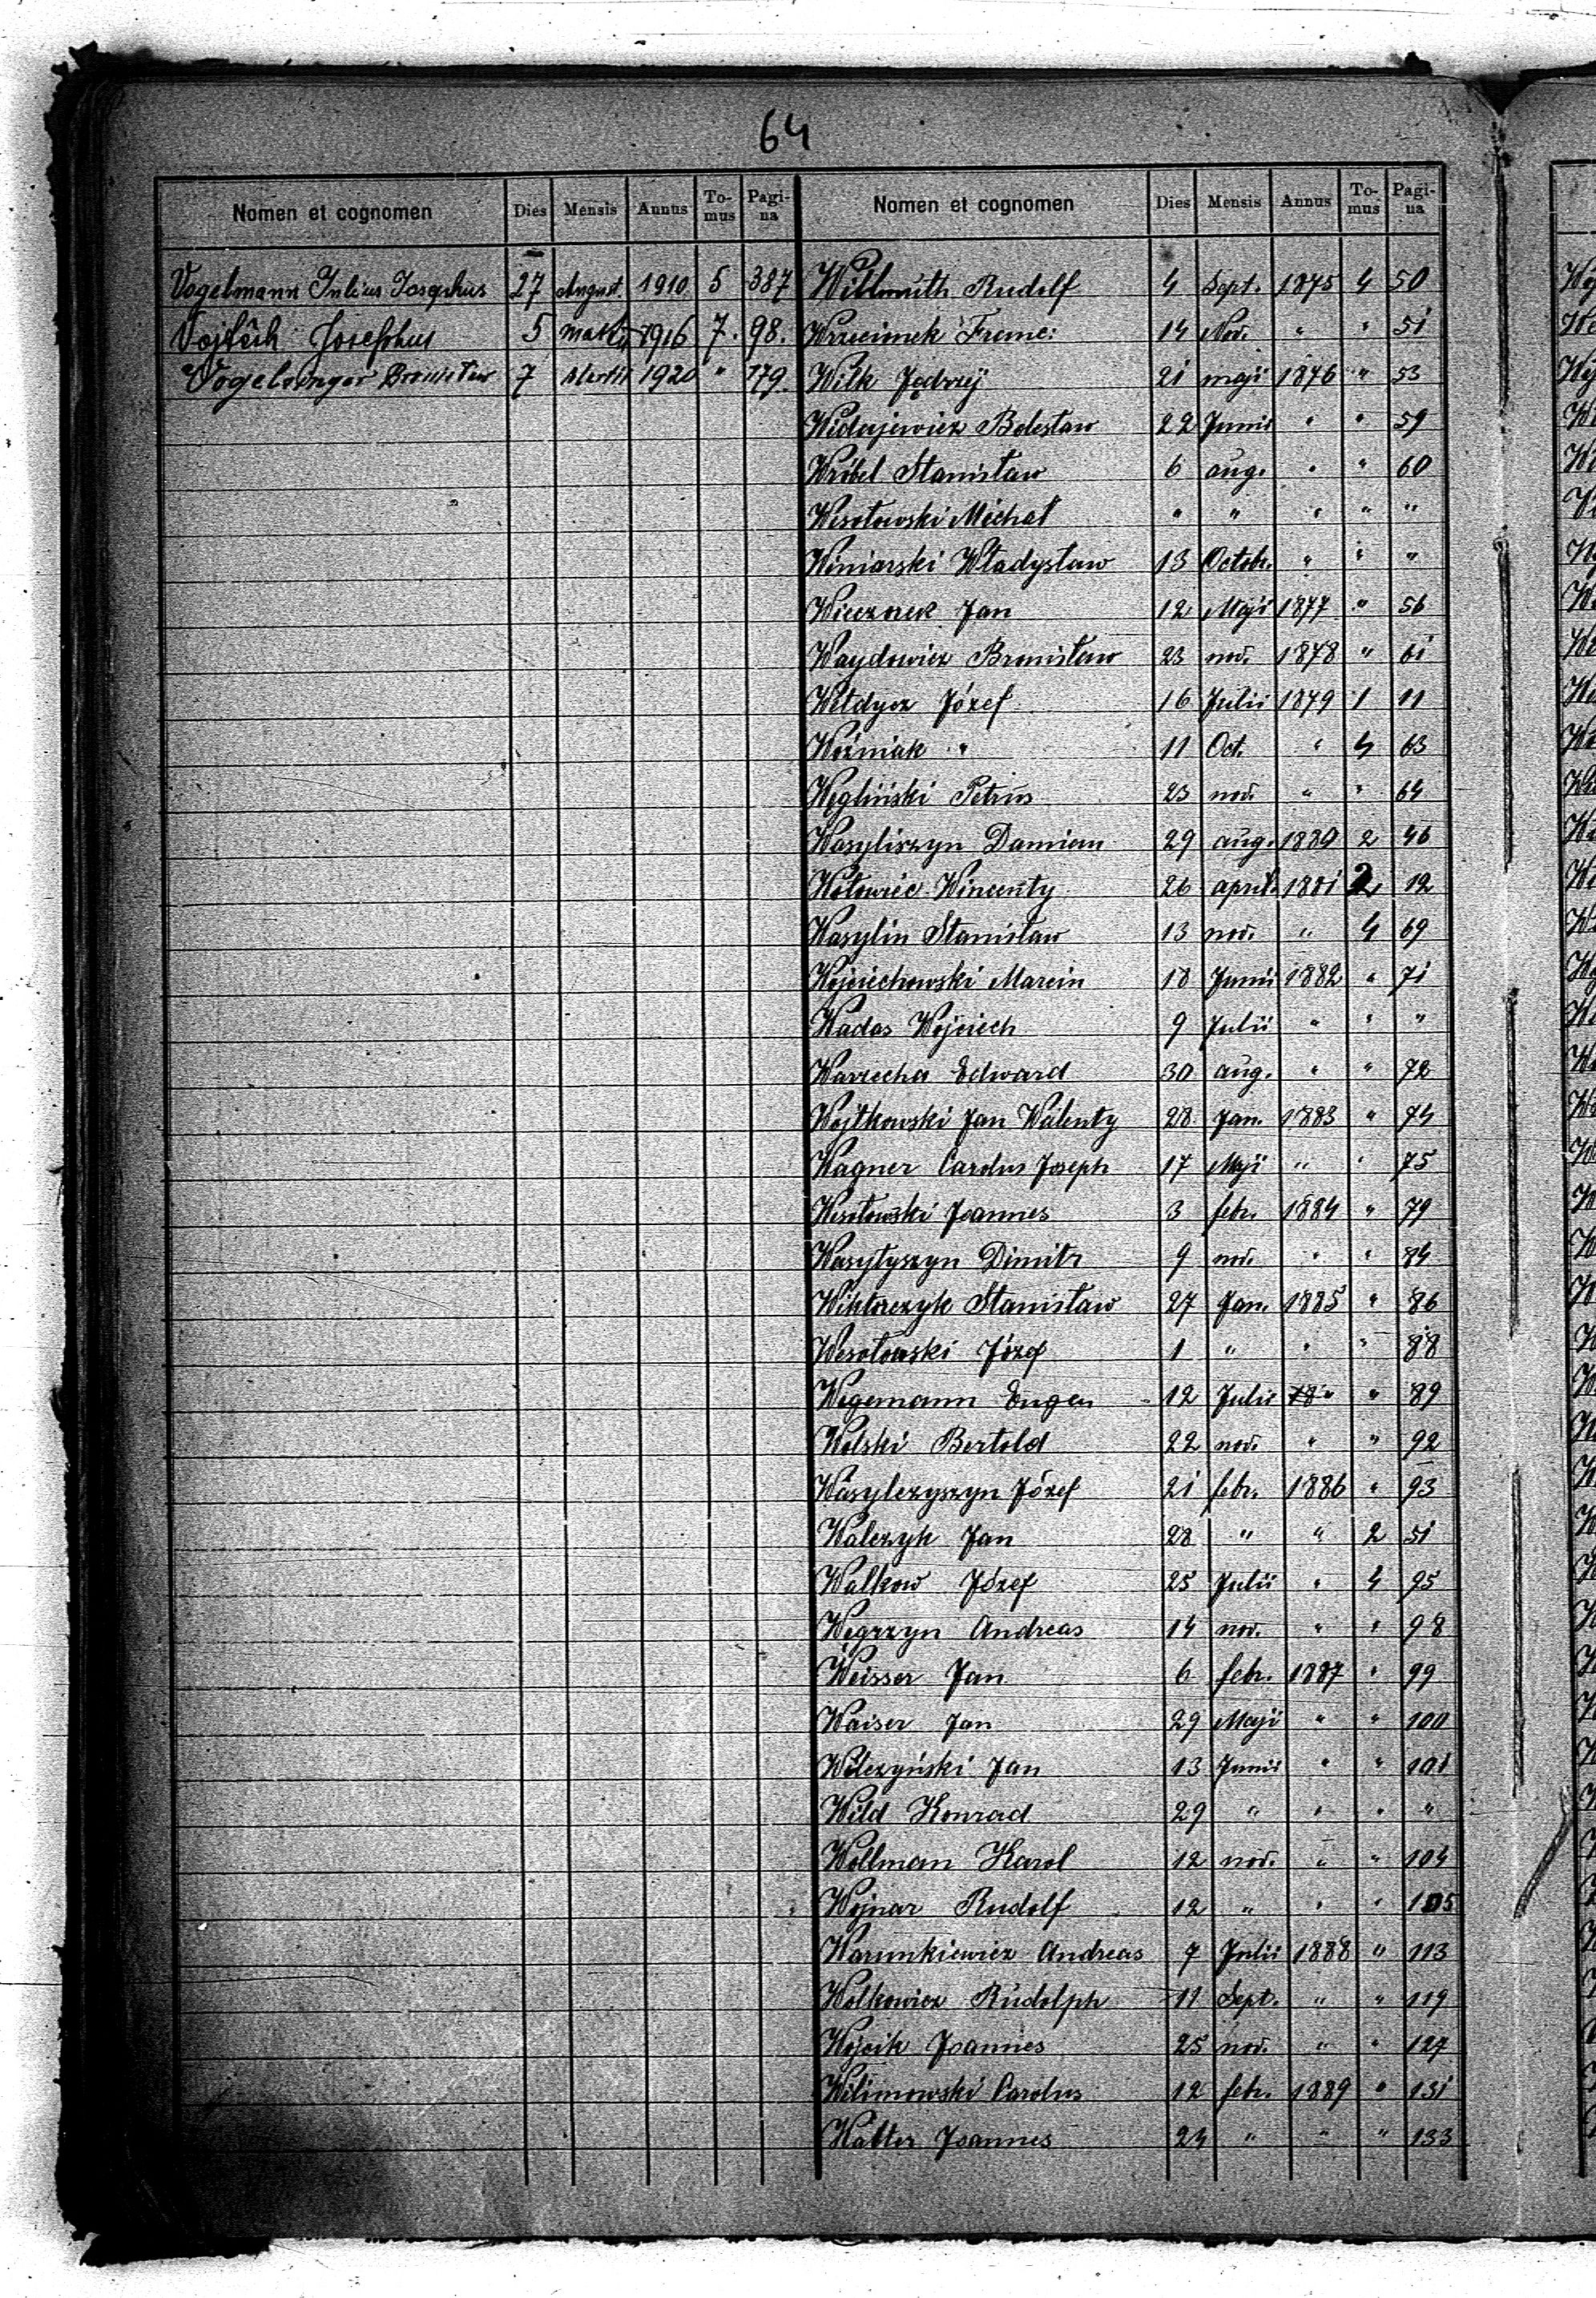 64
Nomen et cognomen Dies Mensis Annus To-mus Pagi-na
Vogelmann Julius Josephus 27 August 1910 5 387
Vojtěch Josephus 5 1916 7. 98.
Vogelsinger Bronisław 7 1920 " 179.
Nomen et cognomen Dies Mensis Annus To-mus Pagi-na
Willmuth Rudolf 4 Sept. 1875 4 50
14 Nov. " " 51
Wilk Jędrzej 21 maji 1876 " 53
Widajewicz Bolesław 22 Junii " " 59
Wróbel Stanisław 6 aug. " " 60
Wesołowski Michał " " " " "
Winiarski Władysław 13 Octobr. " " "
Wieczorek Jan 12 Maji 1877 " 56
Waydowicz Bronisław 23 nov. 1878 " 61
Józef 16 Julii 1879 1 11
Woźniak " 11 Oct. " 4 63
Węgliński Petrus 23 nov. " " 64
Wasyliszyn Damian 29 aug. 2 46
Wołowiec Wincenty 26 april. 1881 2 12
Wasylin Stanisław 13 nov. " 4 69
Wojciechowski Marcin 18 Junii 1882 " 71
Wadas Wojciech 9 Julii " " "
Warzecha Edward 30 aug. " " 72
Wojtkowski Jan Walenty 28 Jan. 1883 " 74
Wagner Carolus Joseph 17 Maji " " 75
Wesołowski Joannes 3 febr. 1884 " 79
Wasyłyszyn Dimitr 9 nov. " " 84
Wiktorczyk Stanisław 27 Jan. 1885 " 86
Wesołowski Józef 1 " " " 88
Wegemann Eugen 12 Julii 18" " 89
Wolski Bertold 22 nov. " " 92
Wasylczyszyn Józef 21 febr. 1886 " 93
Walczyk Jan 28 " " 2 51
Walkow Józef 25 Julii " 4 95
Węgrzyn Andreas 14 nov. " " 98
Weisser Jan 6 febr. 1887 " 99
Waiser Jan 29 Maji " " 100
Wilczyński Jan 13 Junii " " 101
Wild Konrad 29 " " " "
Wollman Karol 12 nov. " " 104
Wojnar Rudolf 12 " " " 105
Warunkiewicz Andreas 7 Julii 1888 " 113
Wolkowicz Rudolph 11 Sept. " " 119
Wojcik Joannes 25 nov. " " 127
Wilimowski Carolus 12 febr. 1889 " 131
Walter Joannes 24 " " " 133